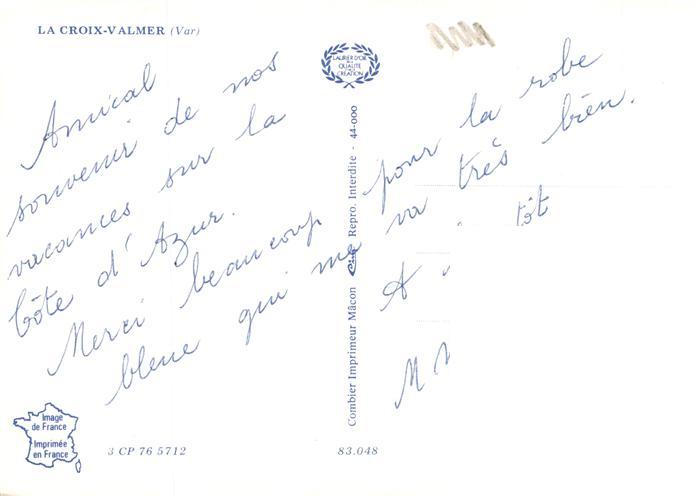 LA CROIX-VALMER (Var)
LAURIER D'OR
DE LA
QUALITÉ
CRÉATION
Amical
souvenir de nos
vacances sur la
Côte d'Azur.
Merci beaucoup pour la robe
bleue qui me va très bien.
A tôt
M
Combier Imprimeur Mâcon Cim Repro. Interdite - 44-000
Image
de France
Imprimée
en France
3 CP 76 5712
83.048